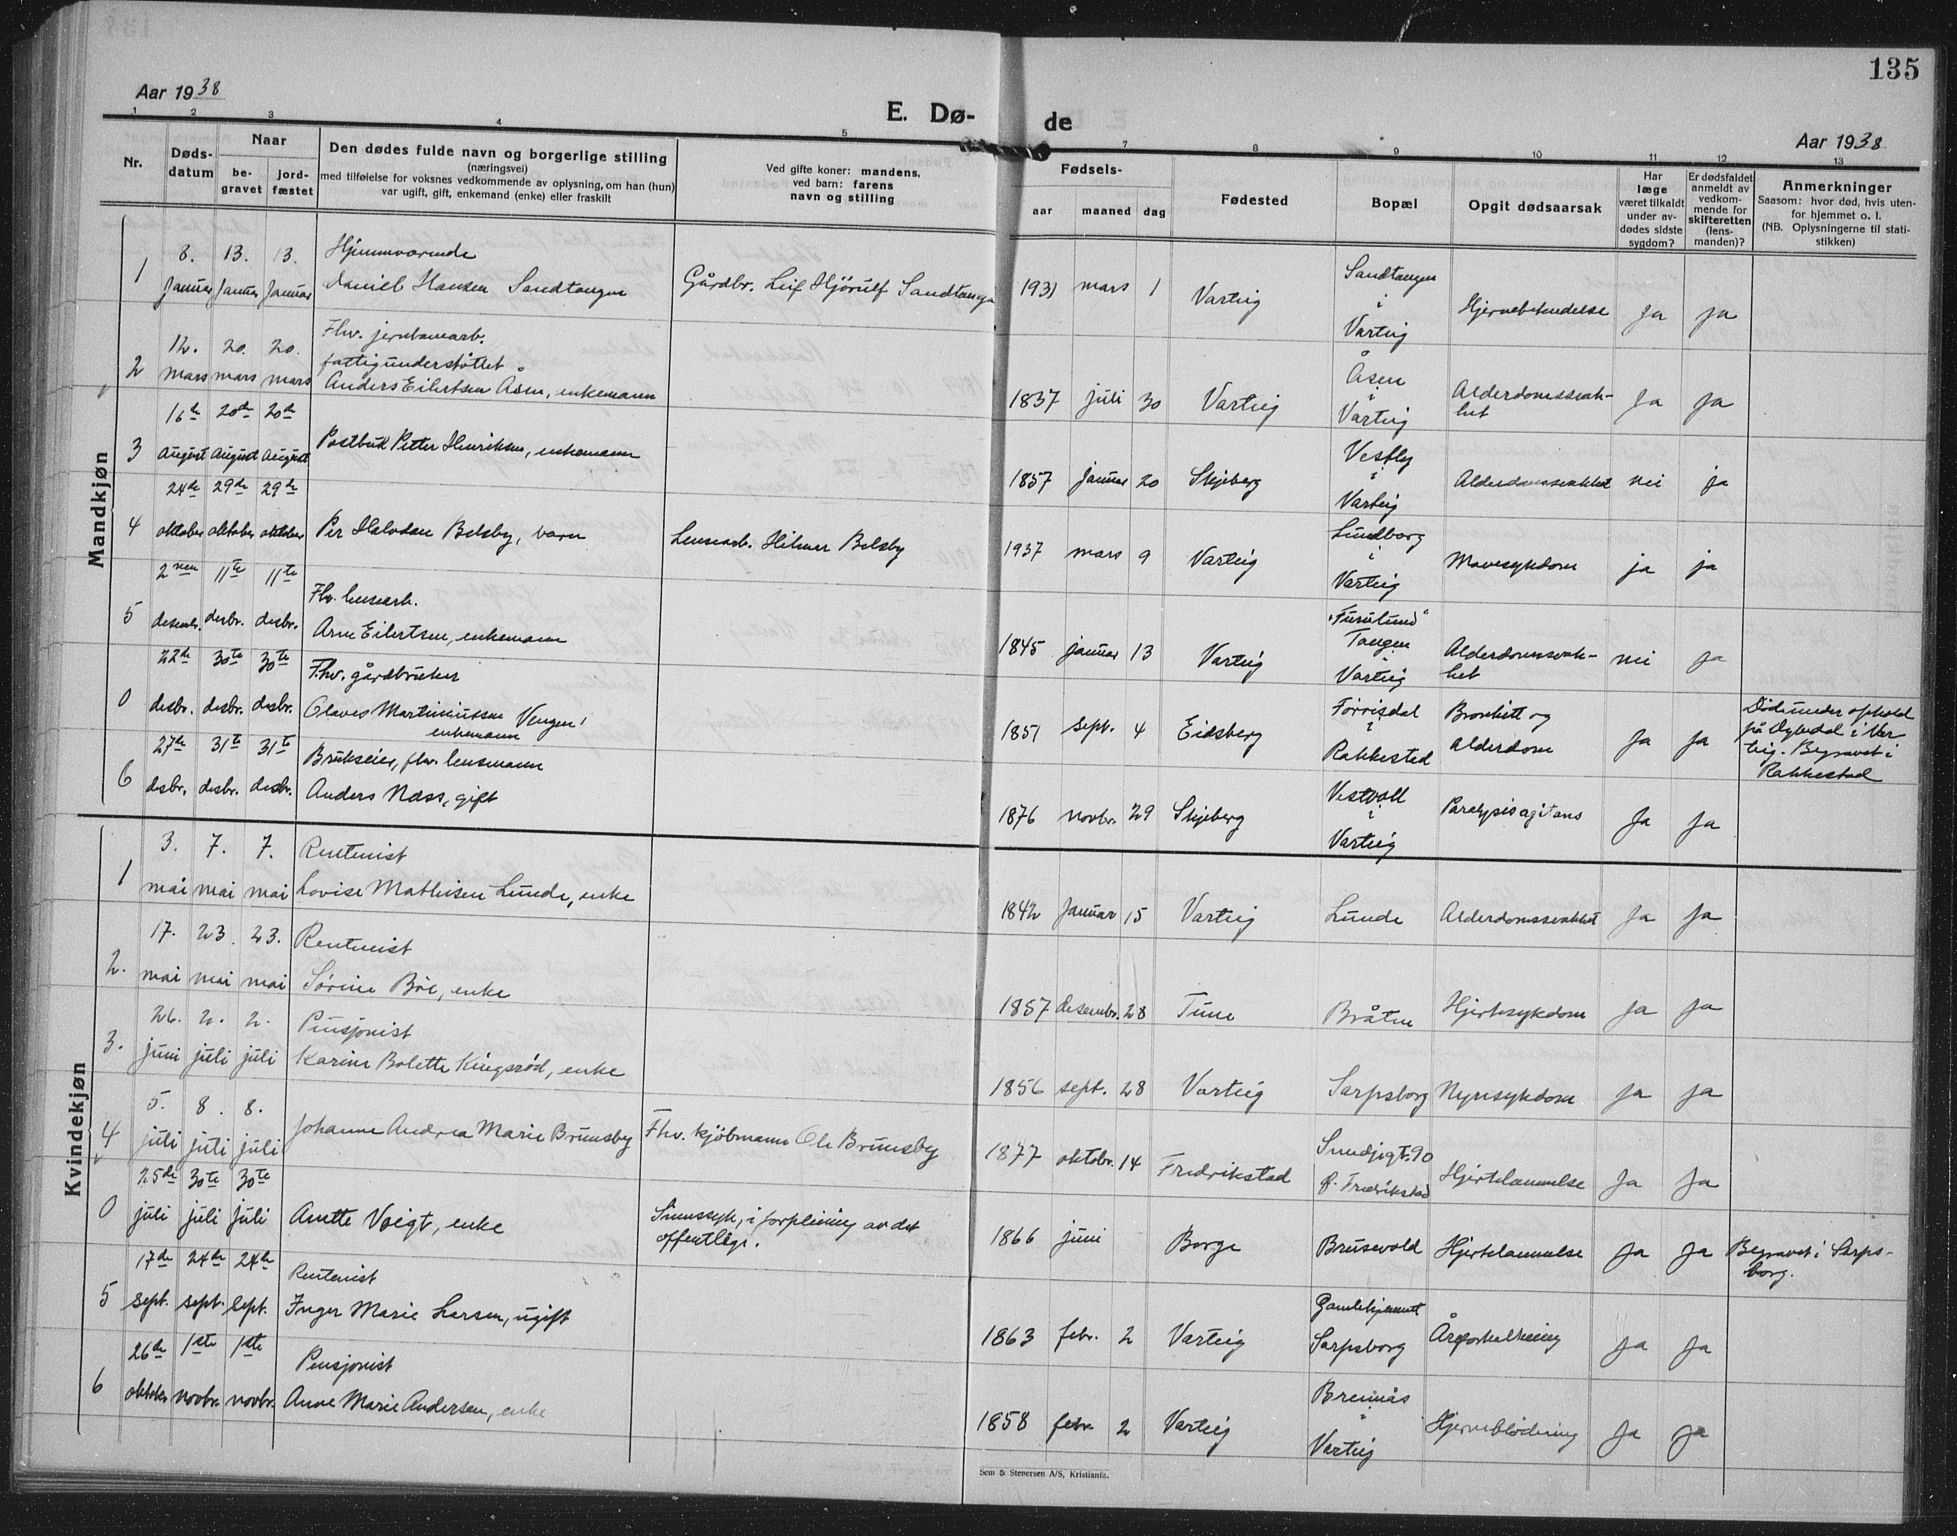 135
Aar 1938
E. Dø-
de
Aar 1938
1 2 3 4 5 7 8 9 10 11 12 13
Nr.
Døds-
datum
Naar
be-
gravet
jord-
fæstet
Den dødes fulde navn og borgerlige stilling
(næringsvei)
med tilføielse for voksnes vedkommende av oplysning, om han (hun)
var ugift, gift, enkemand (enke) eller fraskilt
Ved gifte koner: mandens,
ved barn: farens
navn og stilling
Fødsels-
aar maaned dag
Fødested
Bopæl
Opgit dødsaarsak
Har
læge
været tilkaldt
under av-
dødes sidste
sygdom?
Er dødsfaldet
anmeldt av
vedkom-
mende for
skifteretten
(lens-
manden)?
Anmerkninger
Saasom: hvor død, hvis uten-
for hjemmet o. l.
(NB. Oplysningerne til stati-
stikken)
Mandkjøn
1
8. 13. 13.
Januar Januar Januar
Hjemmværende
Daniel Hansen Sandtangen
Gårdbr. Leif Hjörulf Sandtangen
1931 mars 1
Varteig
Sandtangen
i
Varteig
Hjernebetendelse
Ja ja
2
12. 20. 20.
mars mars mars
Fhv. jernbanearb.
fattigunderstöttet
Anders Eilertsen Åsen, enkemann
1837 juli 30
Varteig
Åsen
i
Varteig
Alderdomssvak-
het
Ja ja
3
16de 20de 20de
August August August
Postbud Petter Henriksen, enkemann
1857 januar 20
Skjeberg
Vestby
i
Varteig
Alderdomssvakhet
nei ja
4
24de 29de 29de
oktober oktober oktober
Per Halvdan Belsby, barn
Lensearb. Hilmar Belsby
1937 mars 9
Varteig
Lundborg
i
Varteig
Mavesykdom
ja ja
5
2nen 11te 11te
desembr. desbr. desbr.
Fhv. lensearb.
Arne Eilertsen, enkemann
1845 januar 13
Varteig
"Furulund"
Tangen
i
Varteig
Alderdomssvak-
het
nei ja
0
22de 30te 30te
desbr. desbr. desbr.
Fhv. gårdbruker
Olaves Martiniussen Vengen,
enkemann
1851 sept. 4
Eidsberg
Förrisdal
i
Rakkestad
Bronkitt og
alderdom
Ja Ja
Död under ophold
på Dybedal i Var
teig. Begravet i
Rakkestad
6
27de 31te 31te
desbr. desbr. desbr.
Brukseier, fhv. lensmann
Anders Næss, gift
1876 novbr. 29
Skjeberg
Vestvoll
i
Varteig
Paralysis agitans
Ja Ja
Kvindekjøn
1
3. 7. 7.
mai mai mai
Rentenist
Lovise Mathisen Lunde, enke
1842 Januar 15
Varteig
Lunde
Alderdomssvakhet
Ja Ja
2.
17. 23. 23.
mai mai mai
Rentenist
Sørine Böe, enke
1857 desembr. 28
Tune
Bråten
Hjertesykdom
Ja Ja
3.
26. 2. 2.
juni juli juli
Pensjonist
Karine Bolette Kingsröd, enke
1856 sept. 28
Varteig
Sarpsborg
Nyresykdom
Ja Ja
4
5. 8. 8.
juli juli juli
Johanne Andrea Marie Brunsby
Fhv. kjöbmann Ole Brunsby
1877 oktobr. 14
Fredrikstad
Smedjegt. 90
p. Fredrikstad
Hjertelammelse
Ja Ja
0
25de 30te 30te
juli juli juli
Anette Voigt, enke
Sinnssyk, i forpleining av det
offentlige.
1866 juni
Borge
Brusevold
Hjertelammelse
Ja Ja
Begravet i Sarps-
borg.
5
17de 24de 24de
sept. sept. sept.
Rentenist
Inger Marie Larsen, ugift
1863 febr. 2
Varteig
Gamlehjemmet
Sarpsborg
Åreforkalkning
Ja Ja
6
26de 1ste 1ste
oktober novbr. novbr.
Pensjonist
Anne Marie Andersen, enke
1858 febr. 2
Varteig
Brennås
i
Varteig
Hjerneblödning
Ja Ja
Sem & Stenersen A/S, Kristiania.